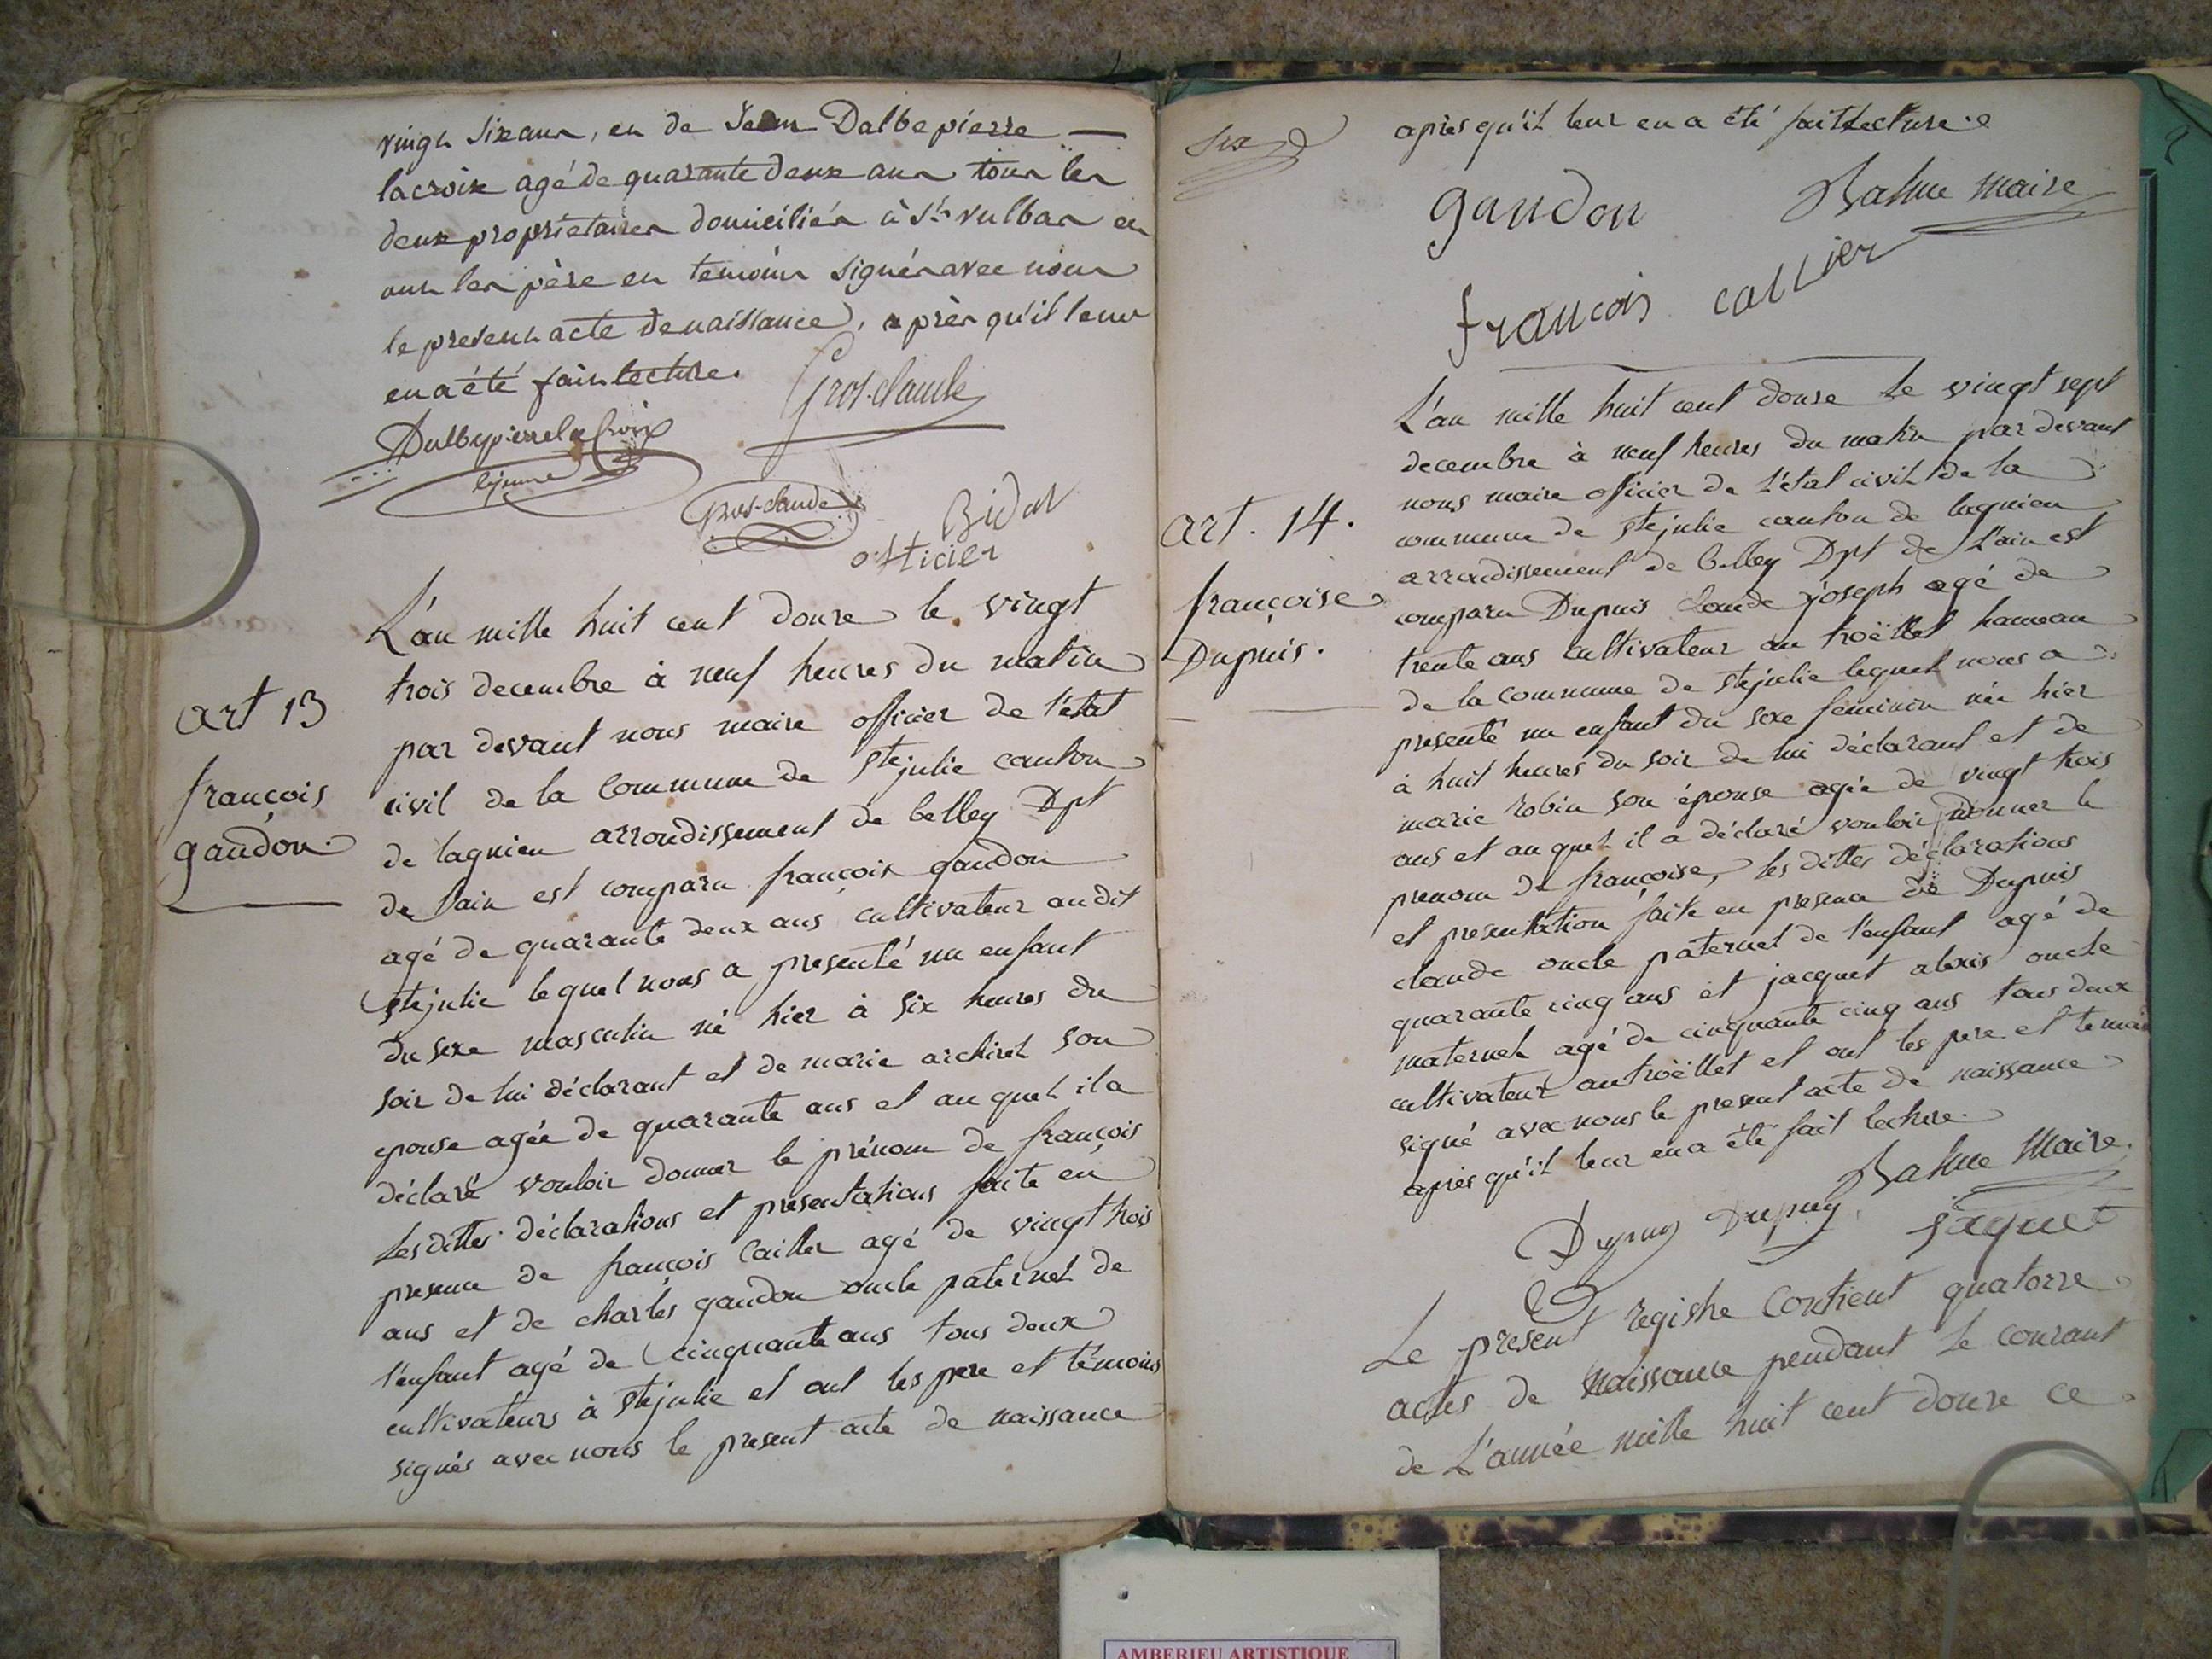 vingt six ans, et de Jean Dalbepierre —
lacroix agé de quarante deux ans tous les
deux propriétaires domiciliés à St vulbas et
ont les père et temoins signés avec nous
le present acte de naissance, après qu'il leur
en a été fait lecture.
Gros-claude
Dalbepierrelacroix
lejeune
Gros-claude
Bidat
officier
L'an mille huit cent douze le vingt
trois decembre à neuf heures du matin
par devant nous maire officier de l'état
civil de la commune de Ste julie canton
de lagnieu arrondissement de belley Dpt
de lain est comparu françois gandon
agé de quarante deux ans cultivateur audit
Ste julie lequel nous a presenté un enfant
du sexe masculin né hier à six heures du
soir de lui déclarant et de marie archinet son
epouse agée de quarante ans et au quel il a
déclaré vouloir donner le prénom de françois
les dittes déclarations et presentations faite en
presence de françois Caillier agé de vingt trois
ans et de charles gandon oncle paternel de
l'enfant agé de cinquante ans tous deux
cultivateurs à Ste julie et ont les pere et témoins
signés avec nous le present acte de naissance
art 13
françois
gandon.
Six
après qu'il leur en a été fait lecture.
gandon
maire
francois callier
art. 14.
françoise
Dupuis.
L'an mille huit cent douze le vingt sept
decembre à neuf heures du matin par devant
nous maire officier de l'état civil de la
commune de Ste julie canton de lagnieu
arrondissement de belley Dpt de L'ain est
comparu Dupuis claude joseph agé de
trente ans cultivateur au troëllet hameau
de la commune de Ste julie lequel nous a
presenté un enfant du sexe féminin née hier
à huit heures du soir de lui déclarant et de
marie robin son épouse agée de vingt trois
ans et au quel il a déclaré vouloir donner le
prenom de françoise, les dittes déclarations
et presentation faite en presence de Dupuis
claude oncle paternel de l'enfant agé de
quarante cinq ans et jacquet alexis oncle
maternel agé de cinquante cinq ans tous deux
cultivateur au troëllet et ont les pere et temoin
signé avec nous le present acte de naissance
après qu'il leur en a été fait lecture.
maire.
Dupuy Dupuy jaquet
Le present registre Contient quatorze
actes de Naissance pendant le courant
de L'année mille huit cent douze ce
AMBERIEU ARTISTIQUE